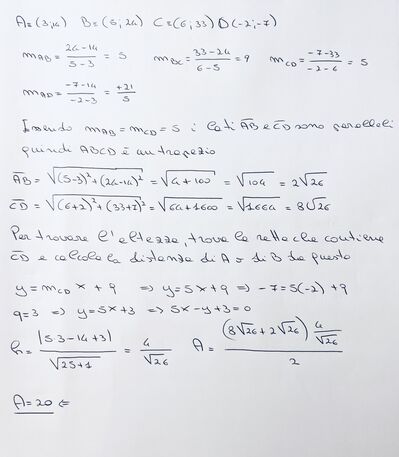 A=(3;14) B=(5;24) C=(6;33) D(-2;-7)
m_AB = (24-14)/(5-3) = 5 m_BC = (33-24)/(6-5) = 9 m_CD = (-7-33)/(-2-6) = 5
m_AD = (-7-14)/(-2-3) = +21/5
Essendo m_AB = m_CD = 5 i lati AB e CD sono paralleli
quindi ABCD è un trapezio
AB = √((5-3)²+(24-14)²) = √(4+100) = √104 = 2√26
CD = √((6+2)²+(33+7)²) = √(64+1600) = √1664 = 8√26
Per trovare l'altezza, trovo la retta che contiene
CD e calcolo la distanza di A o di B da questa
y = m_CD x + q ⇒ y=5x+q ⇒ -7=5(-2)+q
q=3 ⇒ y=5x+3 ⇒ 5x-y+3=0
h = |5·3-14+3|/√(25+1) = 4/√26 A = (8√26+2√26) 4/√26 / 2
A=20 ⇐